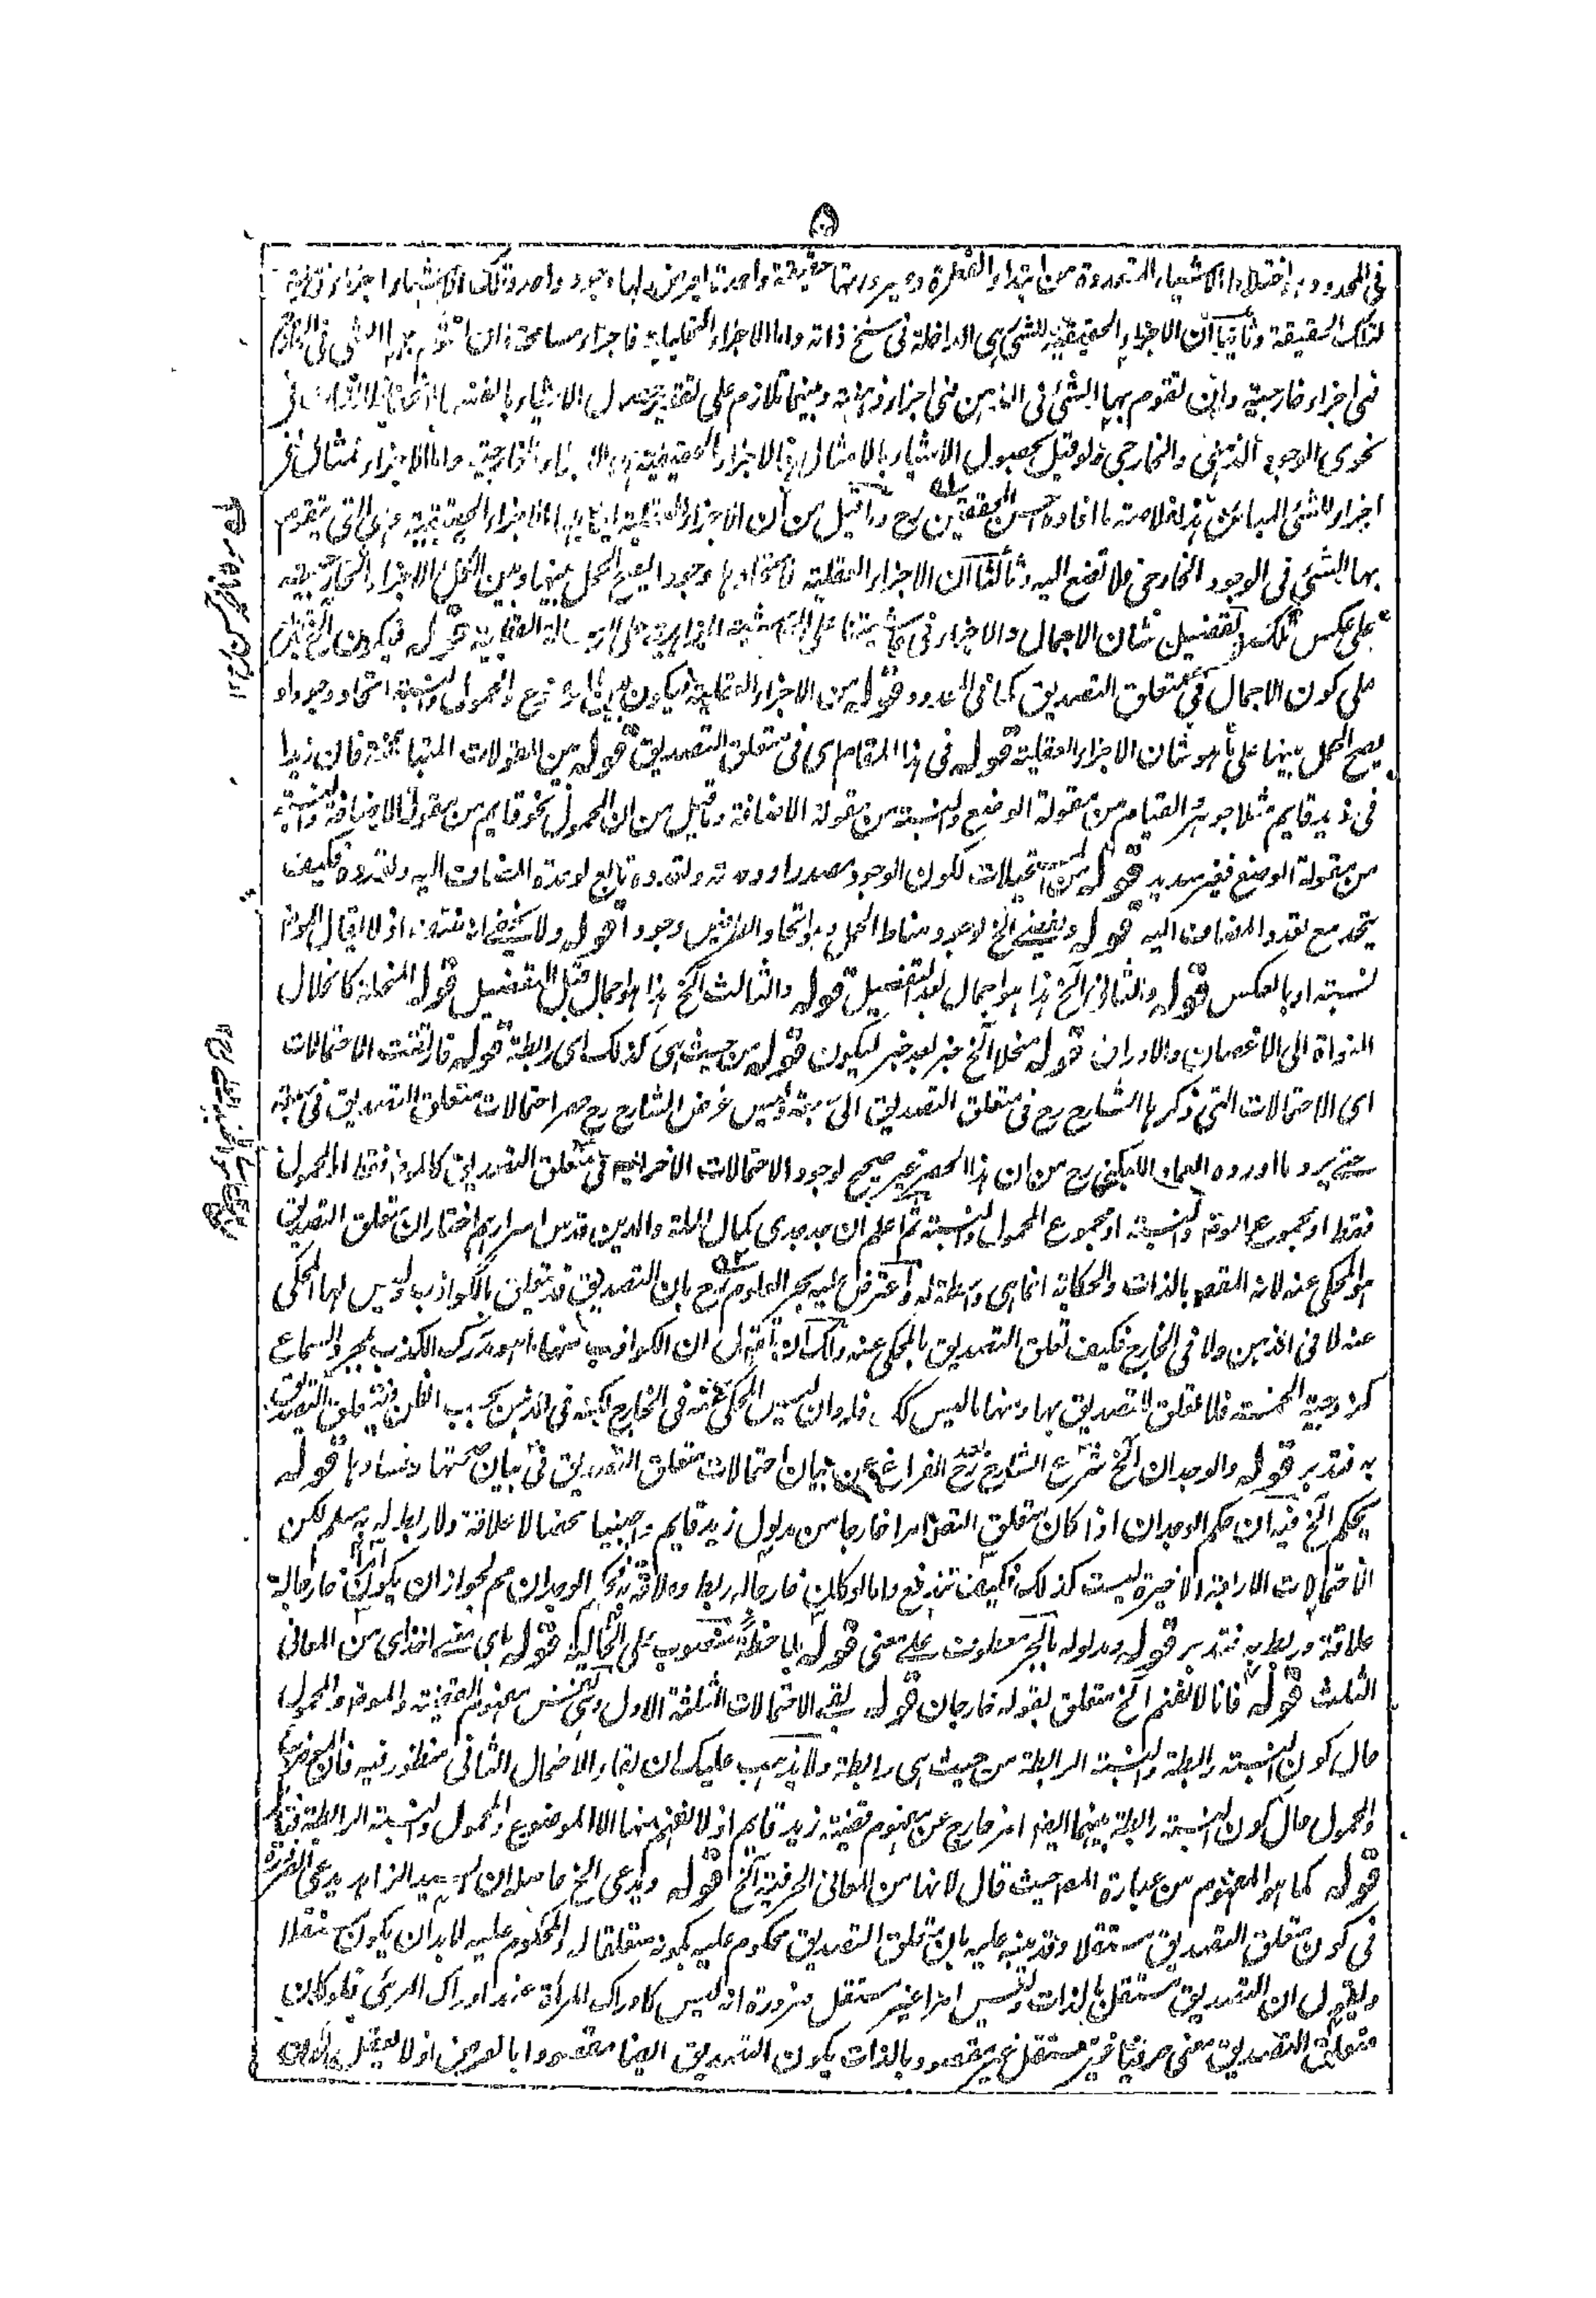 ۵
فى المحدود اختلاط الاشياء المتعددة من ابتداء الفطرة وصيرورتها حقيقة واحدة لها وجود واحد وتلك الاشياء اجزاء
لتلك الحقيقة وثانيا ان الاجزاء الحقيقية للشئ هى الداخلة فى سنخ ذاته واما الاجزاء التحليلية فاجزاء مسامحة فان تقوم بها الشئ فى الخارج
فهى اجزاء خارجية وان تقوم بها الشئ فى الذهن فهى اجزاء ذهنية وبينهما تلازم على تقدير حصول الاشياء بانفسها
نحوى الوجود الذهنى والخارجى ولو قيل بحصول الاشياء بالامثال فالاجزاء الحقيقية هى الاجزاء الخارجية واما الاجزاء
اجزاء للشئ المبائن هذا خلاصة ما افاده احسن المحققين رح وما قيل من ان الاجزاء العقلية اما الاجزاء الحقيقية هى التى يتقوم
بها الشئ فى الوجود الخارجى فلا تصغ اليه وثالثا ان الاجزاء العقلية لاتحادها وجودا يصح الحمل بينها وبين الكل والاجزاء الخارجية
على عكس تلك وتفصيل شان الاجمال والاجزاء فى حاشيتنا على الحاشية الزاهدية على الرسالة القطبية قوله فيكون الخ
على كون الاجمال فى متعلق التصديق كما فى المحدود قوله من الاجزاء العقلية فيكون بين الموضوع والمحمول والنسبة اتحاد وجودا و
يصح الحمل بينها على ما هو شان الاجزاء العقلية قوله فى هذا المقام اى فى متعلق التصديق قوله من المقولات المتبائنة فان زيدا
فى زيد قايم مثلا جوهر والقيام من مقولة الوضع والنسبة من مقولة الاضافة وما قيل من ان المحمول نحو قايم من مقولة الاضافة والنسبة
من مقولة الوضع فغير سديد قوله من المستحيلات لكون الوجود مصدرا وحدته وتعدده تابع لوحدة المضاف اليه وتعدده فكيف
يتحد مع تعدد المضاف اليه قوله ويفضى الخ لوجود مناط الحمل وهو اتحاد الطرفين وجودا قوله ولا يخفى اذ لا يقال
نسبته او بالعكس قوله والثانى الخ هذا هو اجمال بعد التفصيل قوله والثالث الخ هذا هو اجمال قبل التفصيل قوله المنحلة كانحلال
النواة الى الاغصان والاوراق قوله منحلا الخ خبر بعد خبر ليكون قوله من حيث هى كذلك اى رابطة قوله فارتقت الاحتمالات
اى الاحتمالات التى ذكرها الشارح رح فى متعلق التصديق الى سبعة وليس غرض الشارح رح حصر احتمالات متعلق التصديق فى سبعة
حتى يرد ما اورده العماد اللبكنى رح من ان هذا الحصر غير صحيح لوجود الاحتمالات الاخر ايضا فى متعلق التصديق كالموضوع فقط او المحمول
فقط او مجموع الموضوع والنسبة او مجموع المحمول والنسبة ثم اعلم ان جد جدى كمال الملة والدين قدس اسرارهم اختار ان متعلق التصديق
هو المحكى عنه لانه المقصود بالذات والحكاية انما هى واسطة له واعترض عليه بحر العلوم رح بان التصديق قد يتعلق بالكواذب وليس لها المحكى
عنه لا فى الذهن ولا فى الخارج فكيف تعلق التصديق بالمحكى عنه ولك ان تقول ان الكواذب منها ما هو مدرك الكذب بمجرد السماع
كزوجية الخمسة فلا يتعلق التصديق بها ومنها ما ليس كك فله وان ليس المحكى عنه فى الخارج لكنه فى الذهن بحسب الظن فيتعلق التصديق
به فتدبر قوله والوجدان الخ شرع الشارح رح بعد الفراغ عن بيان احتمالات متعلق التصديق فى بيان صحتها وفسادها قوله
يحكم الخ فيه ان حكم الوجدان اذا كان متعلق التصديق امرا خارجا من مدلول زيد قايم واجنبيا محضا لا علاقة ولا ربط له به مسلم لكن
الاحتمالات الاربعة الاخيرة ليست كذلك فكيف تندفع واما لو كان خارجا له ربط وعلاقة به فحكم الوجدان مم لجواز ان يكون امرا خارجا له
علاقة وربط به فتدبر قوله ومدلوله بالجر معطوف على معنى قوله ملاحظة منصوب على الحالية قوله باى معنى اخذ اى من المعانى
الثلث قوله فانا لا نفهم الخ متعلق بقوله خارجان قوله بقى الاحتمالات الثلثة الاول وهى نفس مفهوم القضية والموضوع والمحمول
حال كون النسبة رابطة والنسبة الرابطة من حيث هى رابطة ولا يذهب عليك ان بقاء الاحتمال الثانى منظور فيه فان الموضوع
والمحمول حال كون النسبة رابطة بينهما ايضا امر خارج عن مفهوم قضية زيد قايم اذ لا نفهم منها الا الموضوع والمحمول والنسبة الرابطة فتأمل
قوله كما هو المفهوم من عبارة المصنف حيث قال لانها من المعانى الحرفية الخ قوله ويدعى الخ حاصله ان السيد الزاهد يدعى الضرورة
فى كون متعلق التصديق مستقلا وقد ينبه عليه بان متعلق التصديق محكوم عليه بكونه متعلقا له والمحكوم عليه لابد ان يكون مستقلا
ونقول ان التصديق مستقل بالذات وليس امرا غير مستقل ضرورة انه ليس كادراك المرآة عند ادراك المرئى فلو كان
متعلق التصديق معنى حرفيا غير مستقل غير مقصود بالذات يكون التصديق ايضا مقصودا بالعرض اذ لا يعقل